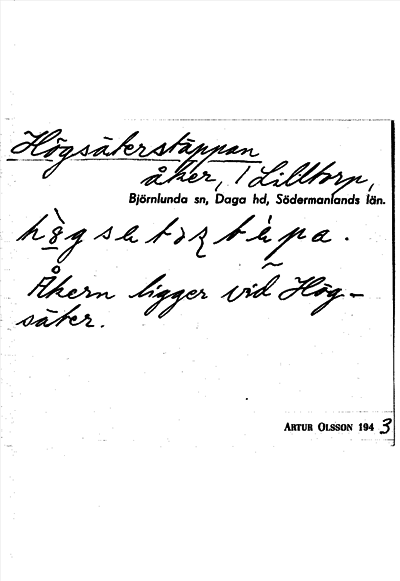 Högsäterstäppan
åker, 1 Lilltorp,
Björnlunda sn, Daga hd, Södermanlands län.
Åkern ligger vid Hög-
säter.
ARTUR OLSSON 1943